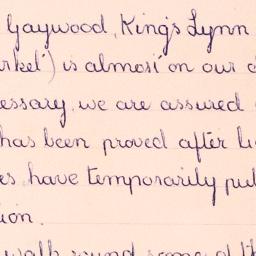 Gaywood, King's Lynn
rket) is almost on our
essary, we are assured
has been proved after
es, have temporarily pu
ion.
walk round some of th